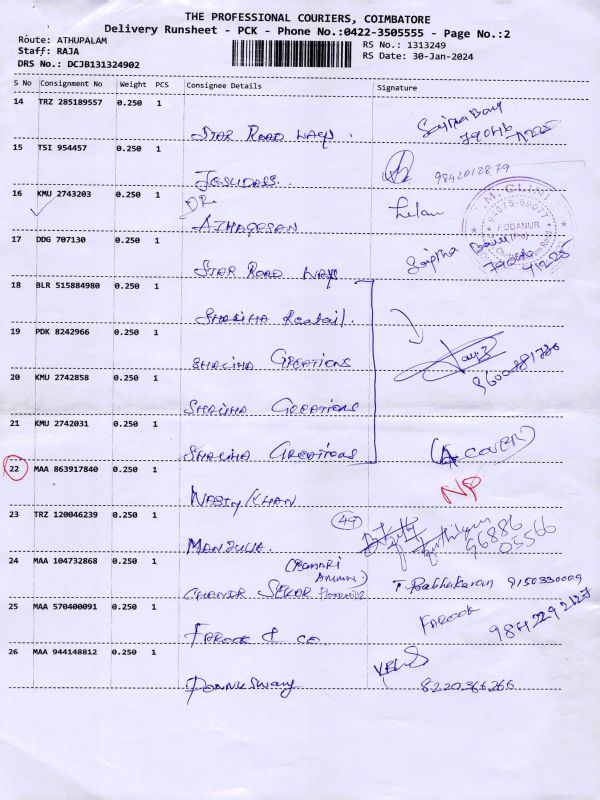 THE PROFESSIONAL COURIERS, COIMBATORE
Delivery Runsheet - PCK - Phone No.:0422-3505555 - Page No.:2
Route: ATHUPALAM
Staff: RAJA
RS No.: 1313249
RS Date: 30-Jan-2024
DRS No.: DCJB131324902
S No Consignment No Weight PCS Consignee Details Signature
14 TRZ 285189557 0.250 1
STAR ROAD WAYS.
15 TSI 954457 0.250 1
JESUDASS. 9842012879
16 KMU 2743203 0.250 1
DR.
ATHAGESAN
M. CLINIC
PODANUR
17 DDG 707130 0.250 1
STAR ROAD WAYS
18 BLR 515884980 0.250 1
SHALIHA
19 PDK 8242966 0.250 1
SHALIHA CREATIONS
20 KMU 2742858 0.250 1
SHALIHA CREATIONS
21 KMU 2742031 0.250 1
SHALIHA CREATIONS
(4 COVER)
22 MAA 863917840 0.250 1
KHAN
NP
23 TRZ 120046239 0.250 1
49
MANJULA.
24 MAA 104732868 0.250 1
CHANDR SEKAR
T. Prabhakaran 9150330009
25 MAA 570400091 0.250 1
FAROOK & CO
FAROOK
26 MAA 944148812 0.250 1
PONNUSWAMY
8220366266